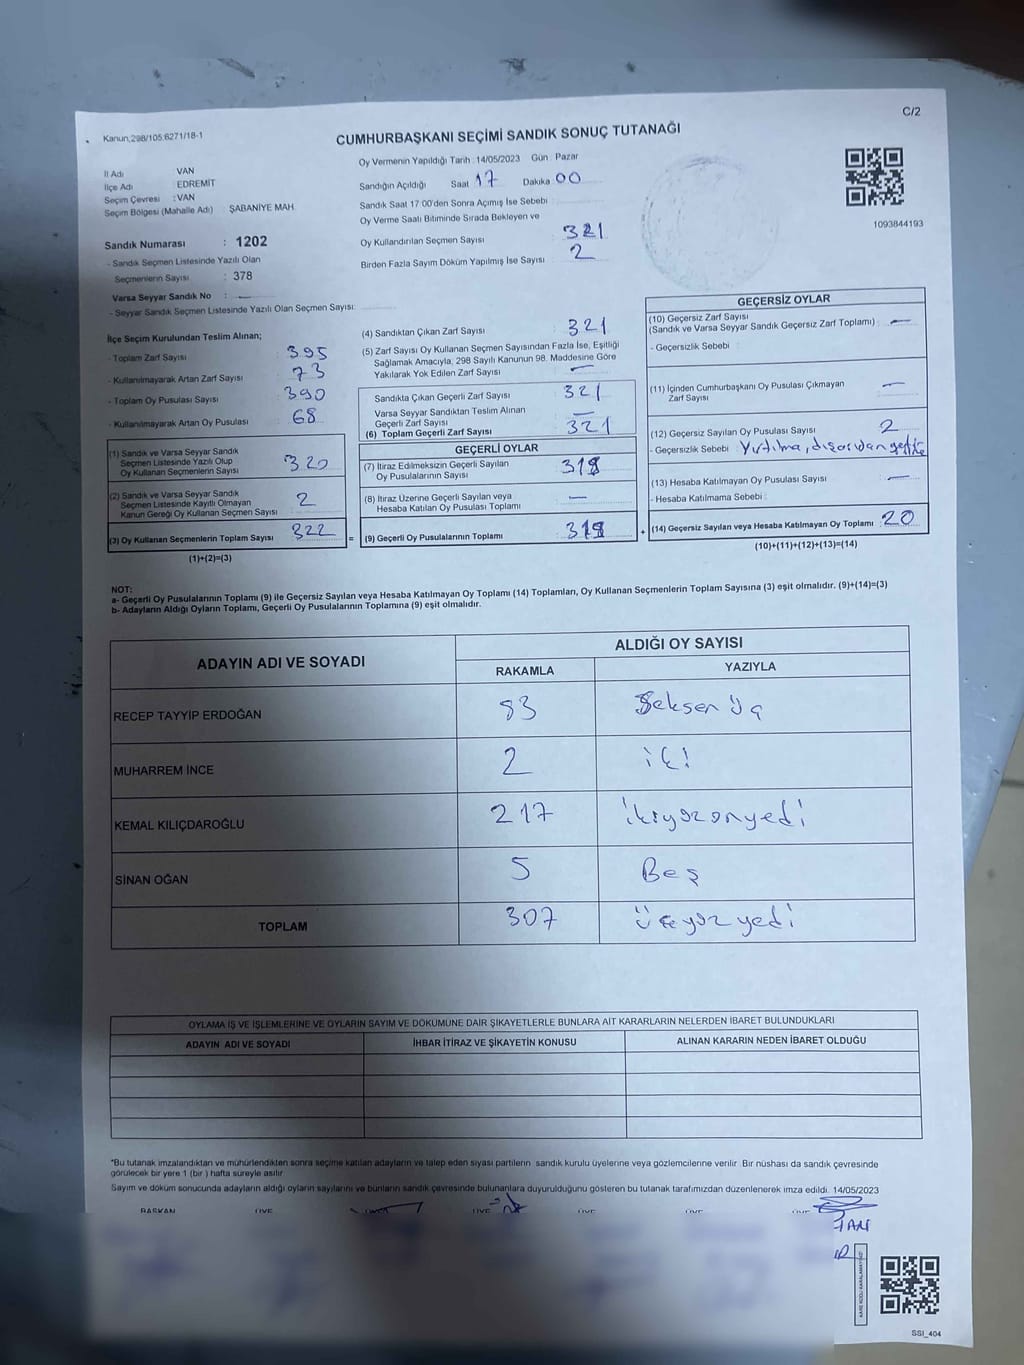 C/2
Kanun,298/105,6271/18-1
CUMHURBAŞKANI SEÇİMİ SANDIK SONUÇ TUTANAĞI
İl Adı VAN
İlçe Adı EDREMİT
Seçim Çevresi : VAN
Seçim Bölgesi (Mahalle Adı) ŞABANİYE MAH
Sandık Numarası : 1202
- Sandık Seçmen Listesinde Yazılı Olan
Seçmenlerin Sayısı : 378
Varsa Seyyar Sandık No :
- Seyyar Sandık Seçmen Listesinde Yazılı Olan Seçmen Sayısı:
Oy Vermenin Yapıldığı Tarih : 14/05/2023 Gün : Pazar
Sandığın Açıldığı Saat 17 Dakika 00
Sandık Saat 17 00'den Sonra Açımış İse Sebebi
Oy Verme Saati Bitiminde Sırada Bekleyen ve
Oy Kullandırılan Seçmen Sayısı 321
Birden Fazla Sayım Döküm Yapılmış İse Sayısı 2
1093844193
İlçe Seçim Kurulundan Teslim Alınan;
- Toplam Zarf Sayısı 395
- Kullanılmayarak Artan Zarf Sayısı 73
- Toplam Oy Pusulası Sayısı 390
- Kullanılmayarak Artan Oy Pusulası 68
(1) Sandık ve Varsa Seyyar Sandık
Seçmen Listesinde Yazılı Olup
Oy Kullanan Seçmenlerin Sayısı 320
(2) Sandık ve Varsa Seyyar Sandık
Seçmen Listesinde Kayıtlı Olmayan
Kanun Gereği Oy Kullanan Seçmen Sayısı 2
(3) Oy Kullanan Seçmenlerin Toplam Sayısı 322 =
(1)+(2)=(3)
(4) Sandıktan Çıkan Zarf Sayısı 321
(5) Zarf Sayısı Oy Kullanan Seçmen Sayısından Fazla İse, Eşitliği
Sağlamak Amacıyla, 298 Sayılı Kanunun 98. Maddesine Göre
Yakılarak Yok Edilen Zarf Sayısı —
Sandıkta Çıkan Geçerli Zarf Sayısı 321
Varsa Seyyar Sandıktan Teslim Alınan
Geçerli Zarf Sayısı —
(6) Toplam Geçerli Zarf Sayısı 321
GEÇERLİ OYLAR
(7) İtiraz Edilmeksizin Geçerli Sayılan
Oy Pusulalarının Sayısı
(8) İtiraz Üzerine Geçerli Sayılan veya
Hesaba Katılan Oy Pusulası Toplamı —
(9) Geçerli Oy Pusulalarının Toplamı +
GEÇERSİZ OYLAR
(10) Geçersiz Zarf Sayısı
(Sandık ve Varsa Seyyar Sandık Geçersiz Zarf Toplamı) : —
- Geçersizlik Sebebi :
(11) İçinden Cumhurbaşkanı Oy Pusulası Çıkmayan
Zarf Sayısı —
(12) Geçersiz Sayılan Oy Pusulası Sayısı 2
- Geçersizlik Sebebi : Yırtılma, dışarıdan
(13) Hesaba Katılmayan Oy Pusulası Sayısı —
- Hesaba Katılmama Sebebi :
(14) Geçersiz Sayılan veya Hesaba Katılmayan Oy Toplamı : 20
(10)+(11)+(12)+(13)=(14)
NOT:
a- Geçerli Oy Pusulalarının Toplamı (9) ile Geçersiz Sayılan veya Hesaba Katılmayan Oy Toplamı (14) Toplamları, Oy Kullanan Seçmenlerin Toplam Sayısına (3) eşit olmalıdır. (9)+(14)=(3)
b- Adayların Aldığı Oyların Toplamı, Geçerli Oy Pusulalarının Toplamına (9) eşit olmalıdır.
ADAYIN ADI VE SOYADI ALDIĞI OY SAYISI
RAKAMLA YAZIYLA
RECEP TAYYİP ERDOĞAN 83 Seksen üç
MUHARREM İNCE 2 iki
KEMAL KILIÇDAROĞLU 217 ikiyüzonyedi
SİNAN OĞAN 5 Beş
TOPLAM 307 üçyüz yedi
OYLAMA İŞ VE İŞLEMLERİNE VE OYLARIN SAYIM VE DÖKÜMÜNE DAİR ŞİKAYETLERLE BUNLARA AİT KARARLARIN NELERDEN İBARET BULUNDUKLARI
ADAYIN ADI VE SOYADI İHBAR İTİRAZ VE ŞİKAYETİN KONUSU ALINAN KARARIN NEDEN İBARET OLDUĞU
*Bu tutanak imzalandıktan ve mühürlendikten sonra seçime katılan adayların ve talep eden siyasi partilerin sandık kurulu üyelerine veya gözlemcilerine verilir. Bir nüshası da sandık çevresinde
görülecek bir yere 1 (bir ) hafta süreyle asılır
Sayım ve döküm sonucunda adayların aldığı oyların sayılarını ve bunların sandık çevresinde bulunanlara duyurulduğunu gösteren bu tutanak tarafımızdan düzenlenerek imza edildi. 14/05/2023
BAŞKAN ÜYE ÜYE ÜYE ÜYE ÜYE
SSI_404